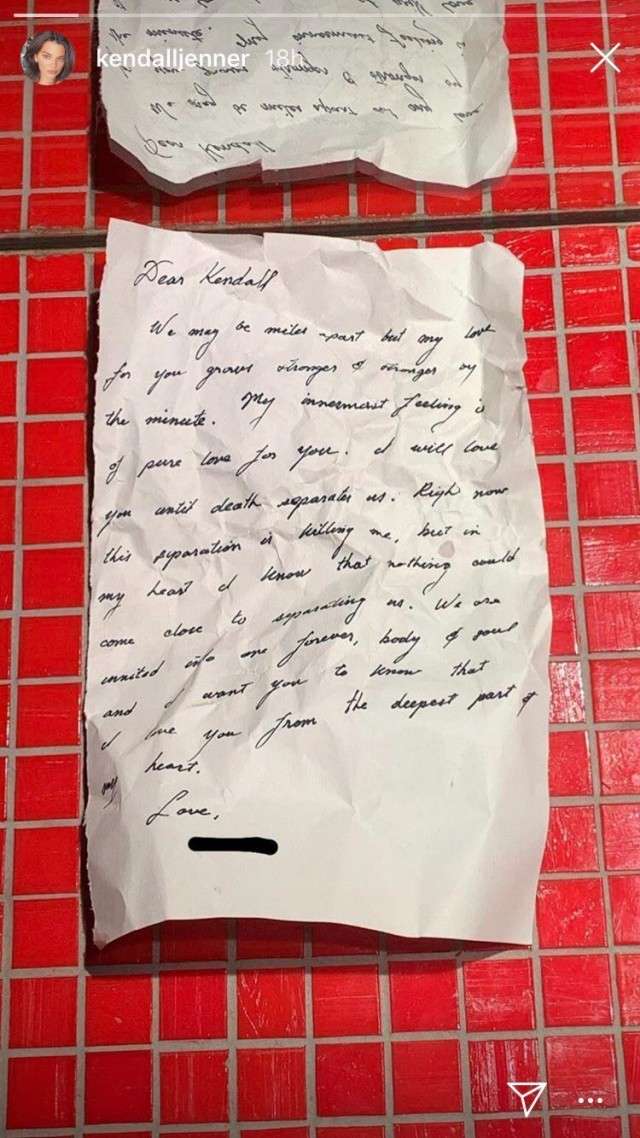 kendalljenner 18h
Dear Kendall
We may be miles apart but my love
for you grows stronger & stronger by
the minute. My innermost feeling is
of pure love for you. I will love
you until death separates us. Righ now
this separation is killing me, but in
my heart I know that nothing could
come close to separating us. We are
united into one forever, body & soul
and I want you to know that
I love you from the deepest part of
my heart.
Love,